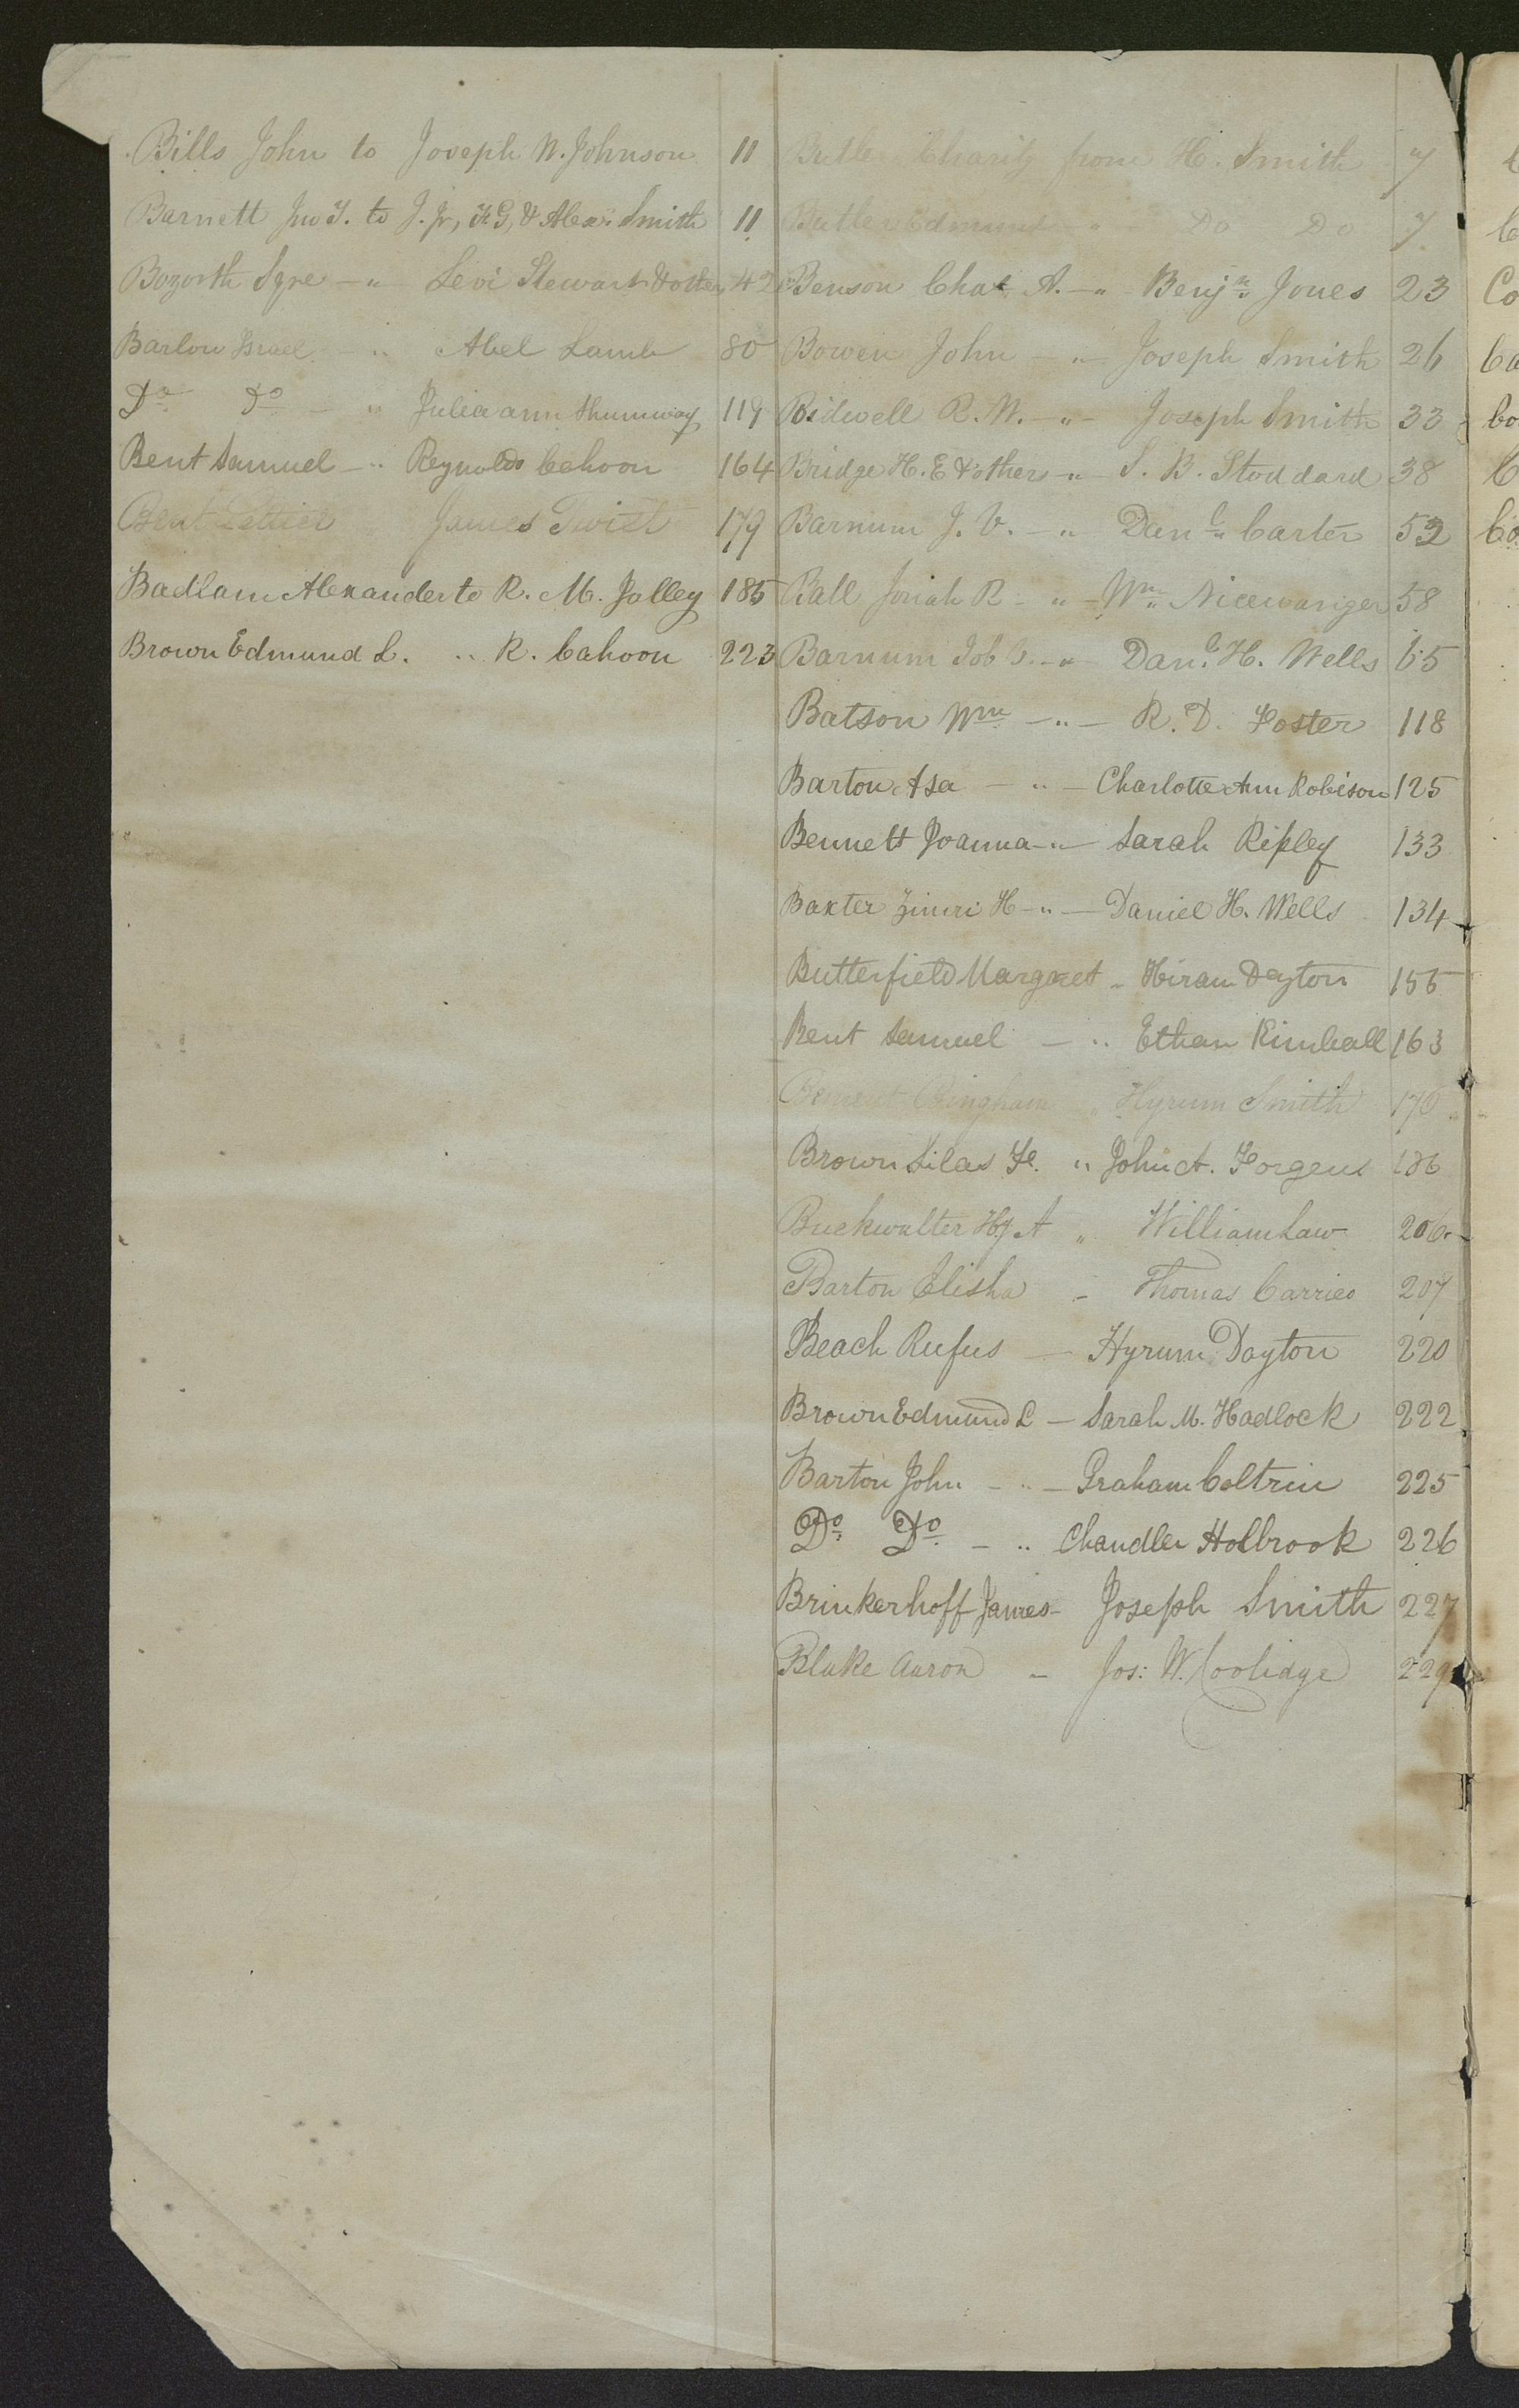 Bills John to Joseph W. Johnson 11
Barnett Jno T. to J. Jr, F G, & Alexr. Smith 11
Bozorth Sqre — " — Levi Stewart & others 42
Barlow Israel — " Abel Lamb 80
Do. Do. — " Julia ann Shumway 119
Bent Samuel — " Reynolds Cahoon 164
Bent Lettice James Twist 179
Badlam Alexander to R. M. Jolley 185
Brown Edmund L. " R. Cahoon 223
Butler Charity from H. Smith 7
Butler Edmund — " — Do Do 7
Benson Chas A. — " Benjn. Jones 23
Bowen John — " — Joseph Smith 26
Bidwell R. W. — " — Joseph Smith 33
Bridge H. E & others — " — S. B. Stoddard 38
Barnum J. V. — " Danl. Carter 52
Ball Josiah R — " — Wm. Nicewanger 58
Barnum Job V. — " — Danl. H. Wells 65
Batson Wm — " — R. D. Foster 118
Barton Asa — " — Charlotte Ann Robison 125
Bennett Joanna — " — Sarah Ripley 133
Baxter Zimri H — " — Daniel H. Wells 134
Butterfield Margaret " Hiram Dayton 155
Bent Samuel — " Ethan Kimball 163
Bement Bingham " Hyrum Smith 170
Brown Silas F. " John A. Forgeus 186
Buckwalter Hy A " William Law 206
Barton Elisha — Thomas Carrico 207
Beach Rufus — Hyrum Dayton 220
Brown Edmund L — Sarah M. Hadlock 222
Barton John — " — Graham Coltrin 225
Do. Do. — " Chandler Holbrook 226
Brinkerhoff James — Joseph Smith 227
Blake Aaron — Jos: W. Coolidge 229